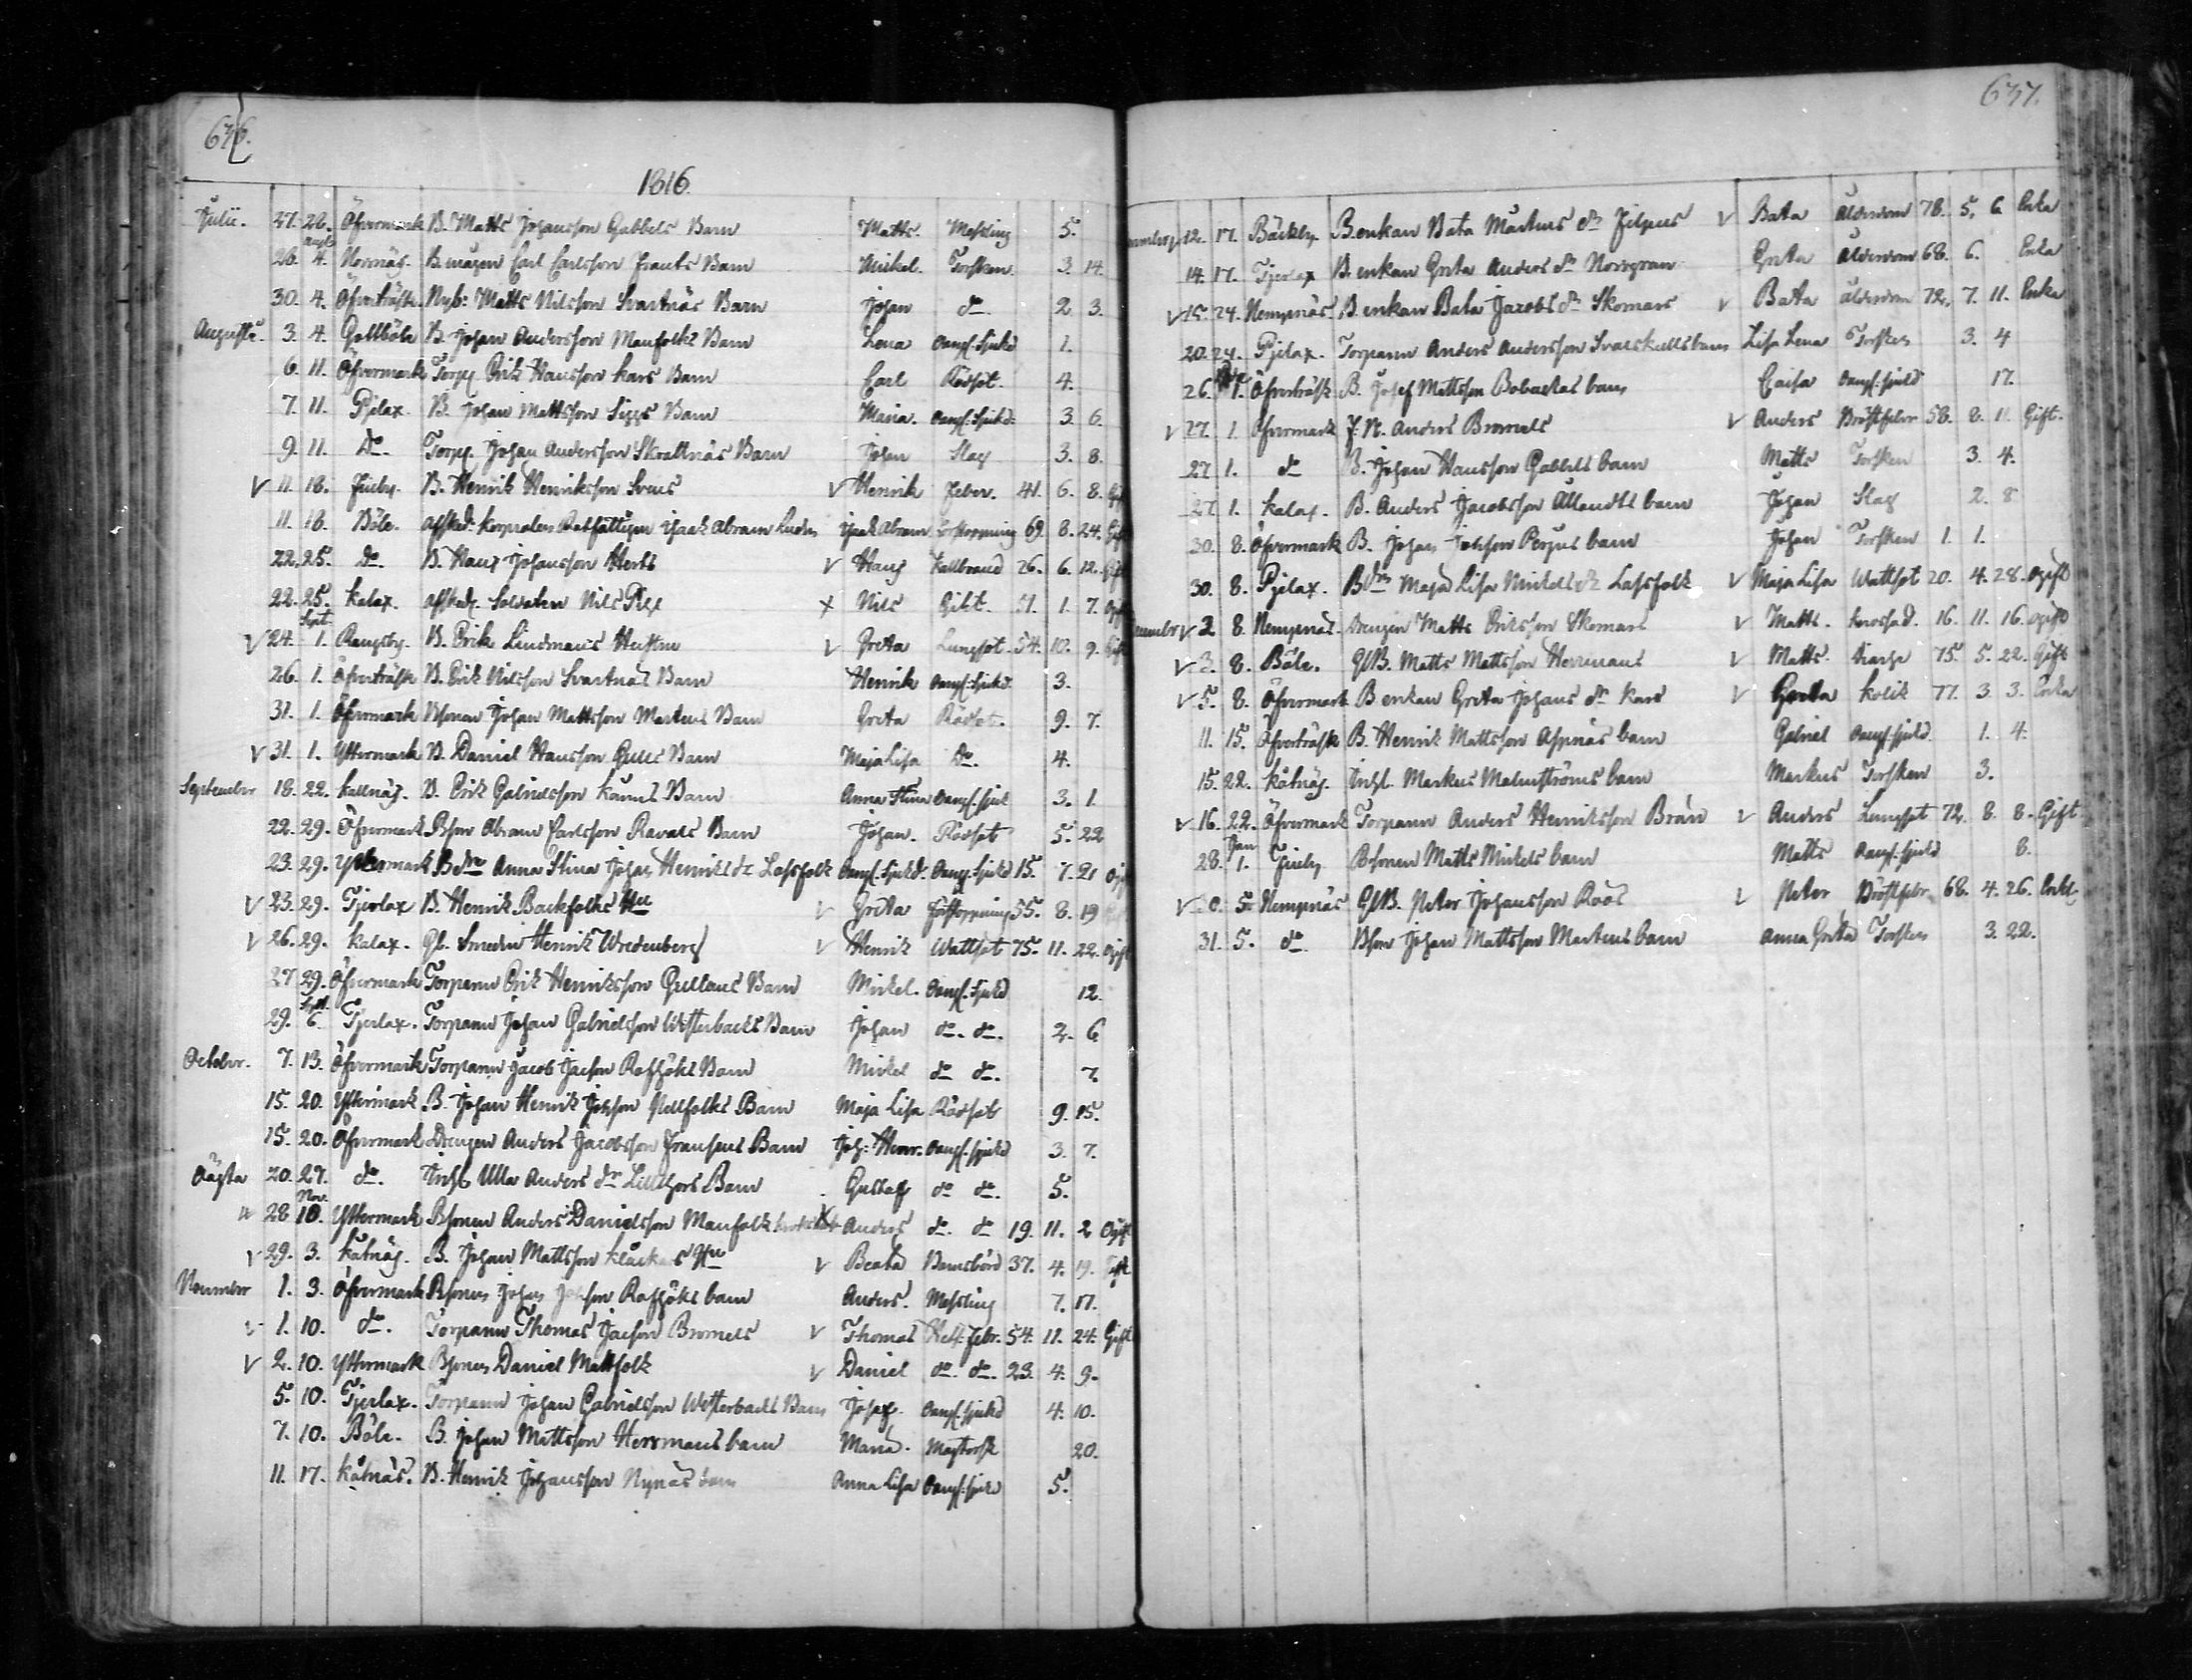 636.
1816.
Julii. 27. 28. Öfvermark B. Matts Johansson Gabbels Barn Matts. Messling 5.
Augl
28. 4. Norrnäs. B. mågen Carl Carlsson Frants Barn Mickel. Torsken. 3. 14.
30. 4. Öfverträsk Nyb: Matts Nilsson Svartnäs Barn Johan do 2 3.
Augusti. 3. 4. Gottböle B. Johan Andersson Manfolks Barn Lena Oangf. Sjukd 1.
6. 11. Öfvermark Torp. Erik Hansson Kars Barn Carl Rödsot. 4.
7. 11. Pjelax. B. Johan Mattsson Siggs Barn Maria. Oangf: Sjukd: 3 6.
9. 11. Do. Torp. Johan Andersson Skrattnäs Barn Johan Slag 3. 8.
V 11. 18. Finby. B. Henrik Henriksson Svens V Henrik Feber. 41. 6. 8. Gift
11. 18. Böle. Afsked. Korpralen Isaak Abram Isak Abram Förstoppning 69. 8. 24. Gift
22. 25. Do. B. Hans Johansson Herts V Hans Kallbrand 26. 6. 12. Gift
22. 25. Kalax. Afsked. Soldaten Nils Pilx X Nils Gikt. 51. 1. 7. Ogift
Sept.
V 24. 1. Rangsby. B. Erik Lindmans Hustru V Greta Lungsot. 54. 10. 9. Gift
26. 1. Öfverträsk B. Erik Nilsson Svartnäs Barn Henrik Oangf: Sjukd. 3.
31. 1. Öfvermark Bsonen Johan Mattsson Martens Barn Greta Rödsot. 9. 7.
V 31. 1. Yttermark B. Daniel Hansson Gulls Barn Maja Lisa Do. 4.
September 18. 22. Kallnäs. B. Erik Gabrielsson Kånns Barn Anna Stina Oangf. sjuk 3. 1.
22. 29. Öfvermark Bson Abram Carlsson Ravals Barn Johan. Rödsot 5. 22
23. 29. Yttermark Bdrn Anna Stina Johan Henriks dr Lassfolk Oangf. Sjukd. Oangf. Sjukd 15. 7. 21 Ogift
V 23. 29. Tjerlax B. Henrik Backfolks Hu V Greta Förstoppning 55. 8. 19
V 26. 29. Kalax. Gl. Smeden Henrik Wredenberg V Henrik Wattsot 75. 11. 22. Ogift
27 29. Öfvermark Torparen Erik Henriksson Gullans Barn Mickel. Oangf. Sjukd 12.
29. 6. Tjerlax. Torparen Johan Gabrielsson Westerbacks Barn Johan do. do. 2. 6
October. 7. 13. Öfvermark Torparen Jacob Jacson Rafföks Barn Mickel do do. 7.
15. 20. Yttermark B. Johan Henrik Johsson Nellfolks Barn Maja Lisa Rödsot 9. 15.
15. 20. Öfvermark Drengen Anders Jacobsson Fransens Barn Joh: Henr. Oangf. sjukd 3. 7.
Oägta 20. 27. do. Inhs. Ulla Anders dr Lillthors Barn Gustaf do do. 5.
Nov.
28 10. Yttermark Bsonen Anders Danielsson Manfolk X Anders do. do 19. 11. 2 Ogift
V 29. 3. Kåtnäs. B. Johan Mattsson Klåckars Hu V Beata Barnsbörd 37. 4. 19. Gift
November 1. 3. Öfvermark Bsonen Johan Johsson Rafföks barn Anders. Messling 7. 17.
V 1. 10. do. Torparen Thomas Jacson Bromels V Thomas Het. Feber. 54. 11. 24. Gift
V 2. 10. Yttermark Bsonen Daniel Mattfolk V Daniel do. do. 23. 4. 9.
5. 10. Tjerlax. Torparen Johan Gabrielsson Westerbacks Barn Josef. Oangf. sjukd 4. 10.
7. 10. Böle. B. Johan Mattsson Herrmans barn Maria. Magtorsk 20.
11. 17. Kåtnäs. B. Henrik Johansson Nynäs barn Anna Lisa Oangf: sjukd 5.
637.
12. 17. Bäckby. B. enkan Bata Mårtens dr Filpus V Bata Ålderdom 78. 5. 6 Enka
14. 17. Tjerlax B. enkan Greta Anders dr Norrgran Greta Ålderdom 68. 6. Enka
V 15. 24. Nempnäs. B. enkan Bata Jacobs dr Skomars V Bata ålderdom 72. 7. 11. Enka
20. 24. Pjelax. Torparen Anders Andersson barn Lisa Lena Torsken 3. 4
26. 1. Öfverträsk B. Josef Mattsson Bobackas barn Caisa Oangf: sjukd 17.
V 27. 1 Öfvermark F. N. Anders Bromels V Anders Bröstfeber 58. 8. 11. Gift.
27 1. do B. Johan Hansson Gabbels barn Matts Torsken 3. 4.
27. 1. Kalax. B. Anders Jacobsson Allandts barn Johan Slag 2. 8
30. 8. Öfvermark B. Johan Johsson Perjus barn Johan Torsken 1. 1.
30. 8. Pjelax. Bdrn Maja Lisa Mickels dr Lassfolk V Maja Lisa Wattsot 20. 4. 28. ogift
V 2 8. Nempnäs. Drengen Matts Eriksson Skomars V Matts. 16. 11. 16. ogift
V 3. 8. Böle. GlB. Matts Mattsson Herrmans V Matts. 75. 5. 22. Gift
V 5. 8. Öfvermark B enkan Greta Johans dr Kars V Greta Kolik 77. 3. 3. Enka
11. 15. Öfverträsk B. Henrik Mattsson Aspnäs barn Gabriel Oangf. sjukd. 1. 4.
15. 22. Kåtnäs. Inhs. Markus Malmströms barn Markus Torsken 3.
V 16. 22. Öfvermark Torparen Anders Henriksson Brån V Anders Lungsot 72. 8. 8. Gift
Jan
28. 1. Finby Bsonen Matts Mickels barn Matts Oangf. sjukd 8.
V 5. Nempnäs GlB. Peter Johansson Roos V Peter Bröstfebr. 68. 4. 26. Enkl.
31. 5. do Bson Johan Mattsson Martens barn Anna Greta Torsken 3. 22.